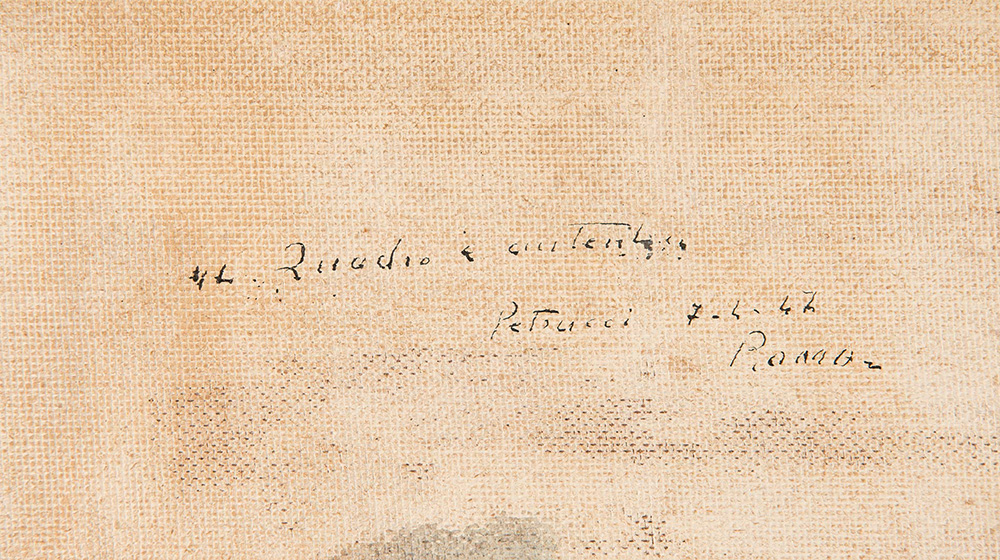 Il Quadro è autentico
Petrucci 7-4-47
Roma